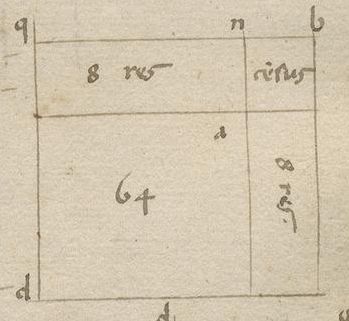 q n b
8 res cēsus
a
64
8 res
d
d
g